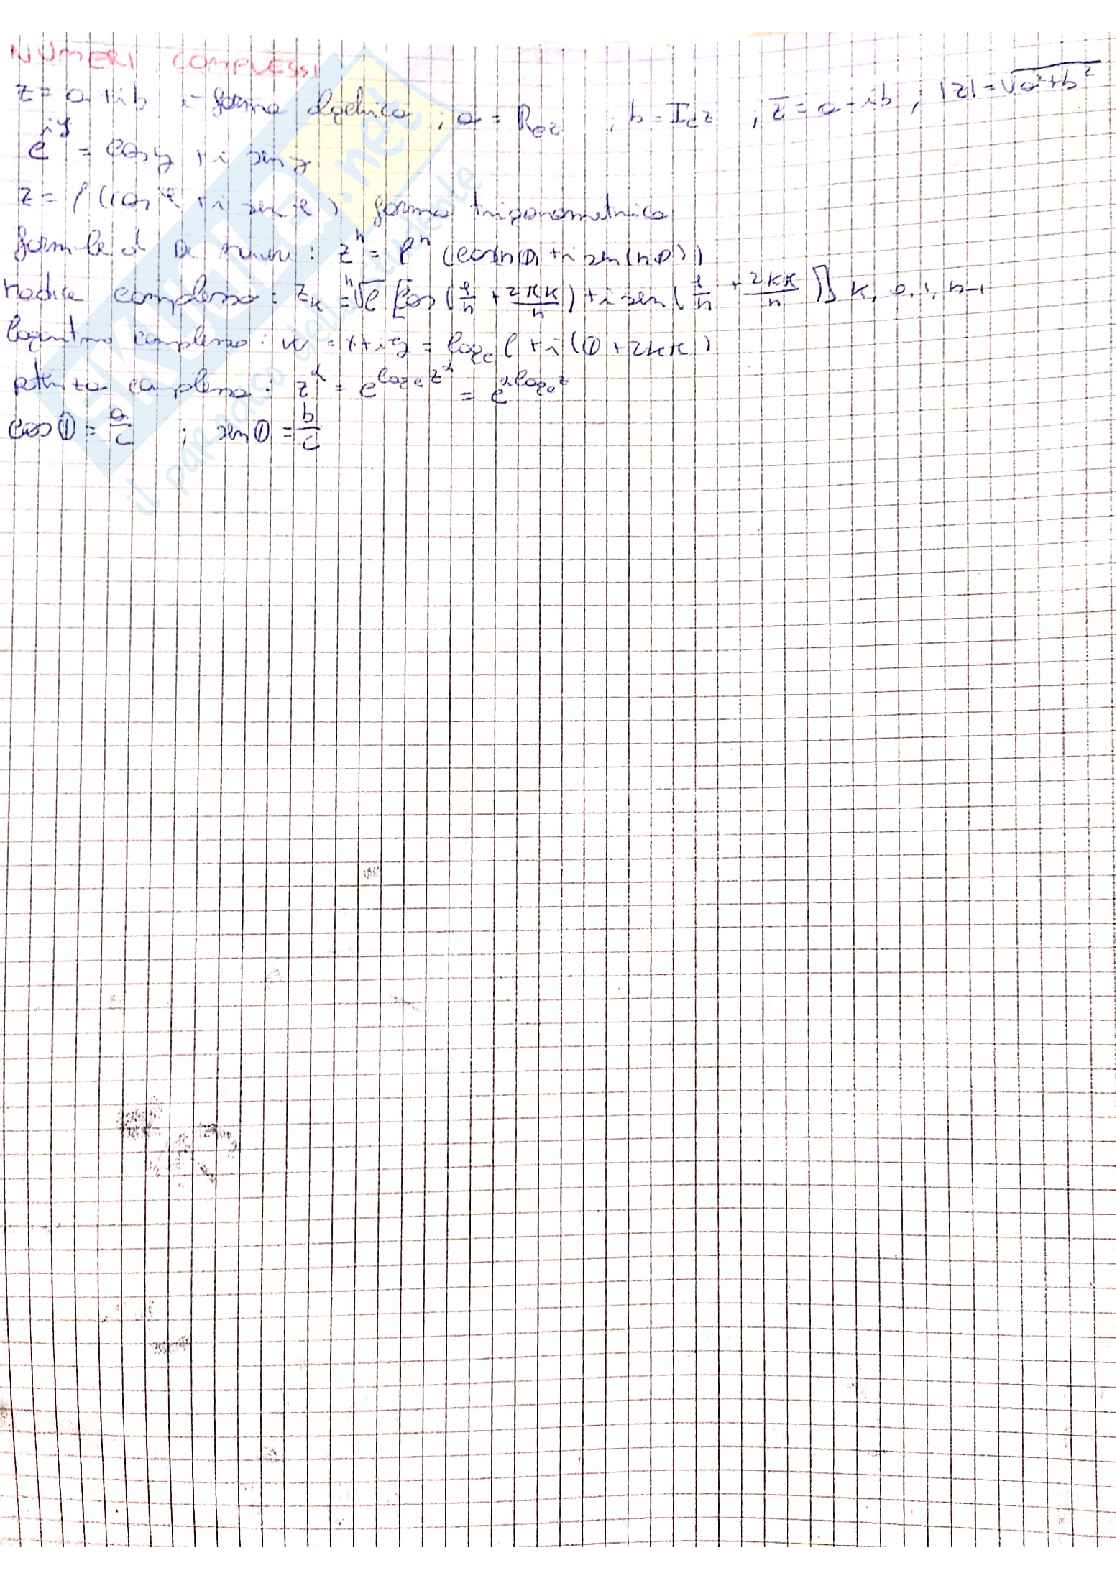 NUMERI COMPLESSI
z = a + ib → forma algebrica ; a = Re z ; b = Im z ; z̅ = a - ib ; |z| = √(a² + b²)
e^{iy} = cos y + i sen y
z = ρ (cos φ + i sen φ) forma trigonometrica
formule di De Moivre : zⁿ = ρⁿ (cos(nφ) + i sen(nφ))
radice complessa : z_k = ⁿ√ρ [cos (φ/n + 2kπ/n) + i sen (φ/n + 2kπ/n)] k, 0, 1, n-1
logaritmo complesso : w = x + iy = log_e ρ + i (φ + 2kπ)
potenza complessa : z^α = e^{log_e z^α} = e^{α log_e z}
cos φ = a/ρ ; sen φ = b/ρ
SKUOLA.net